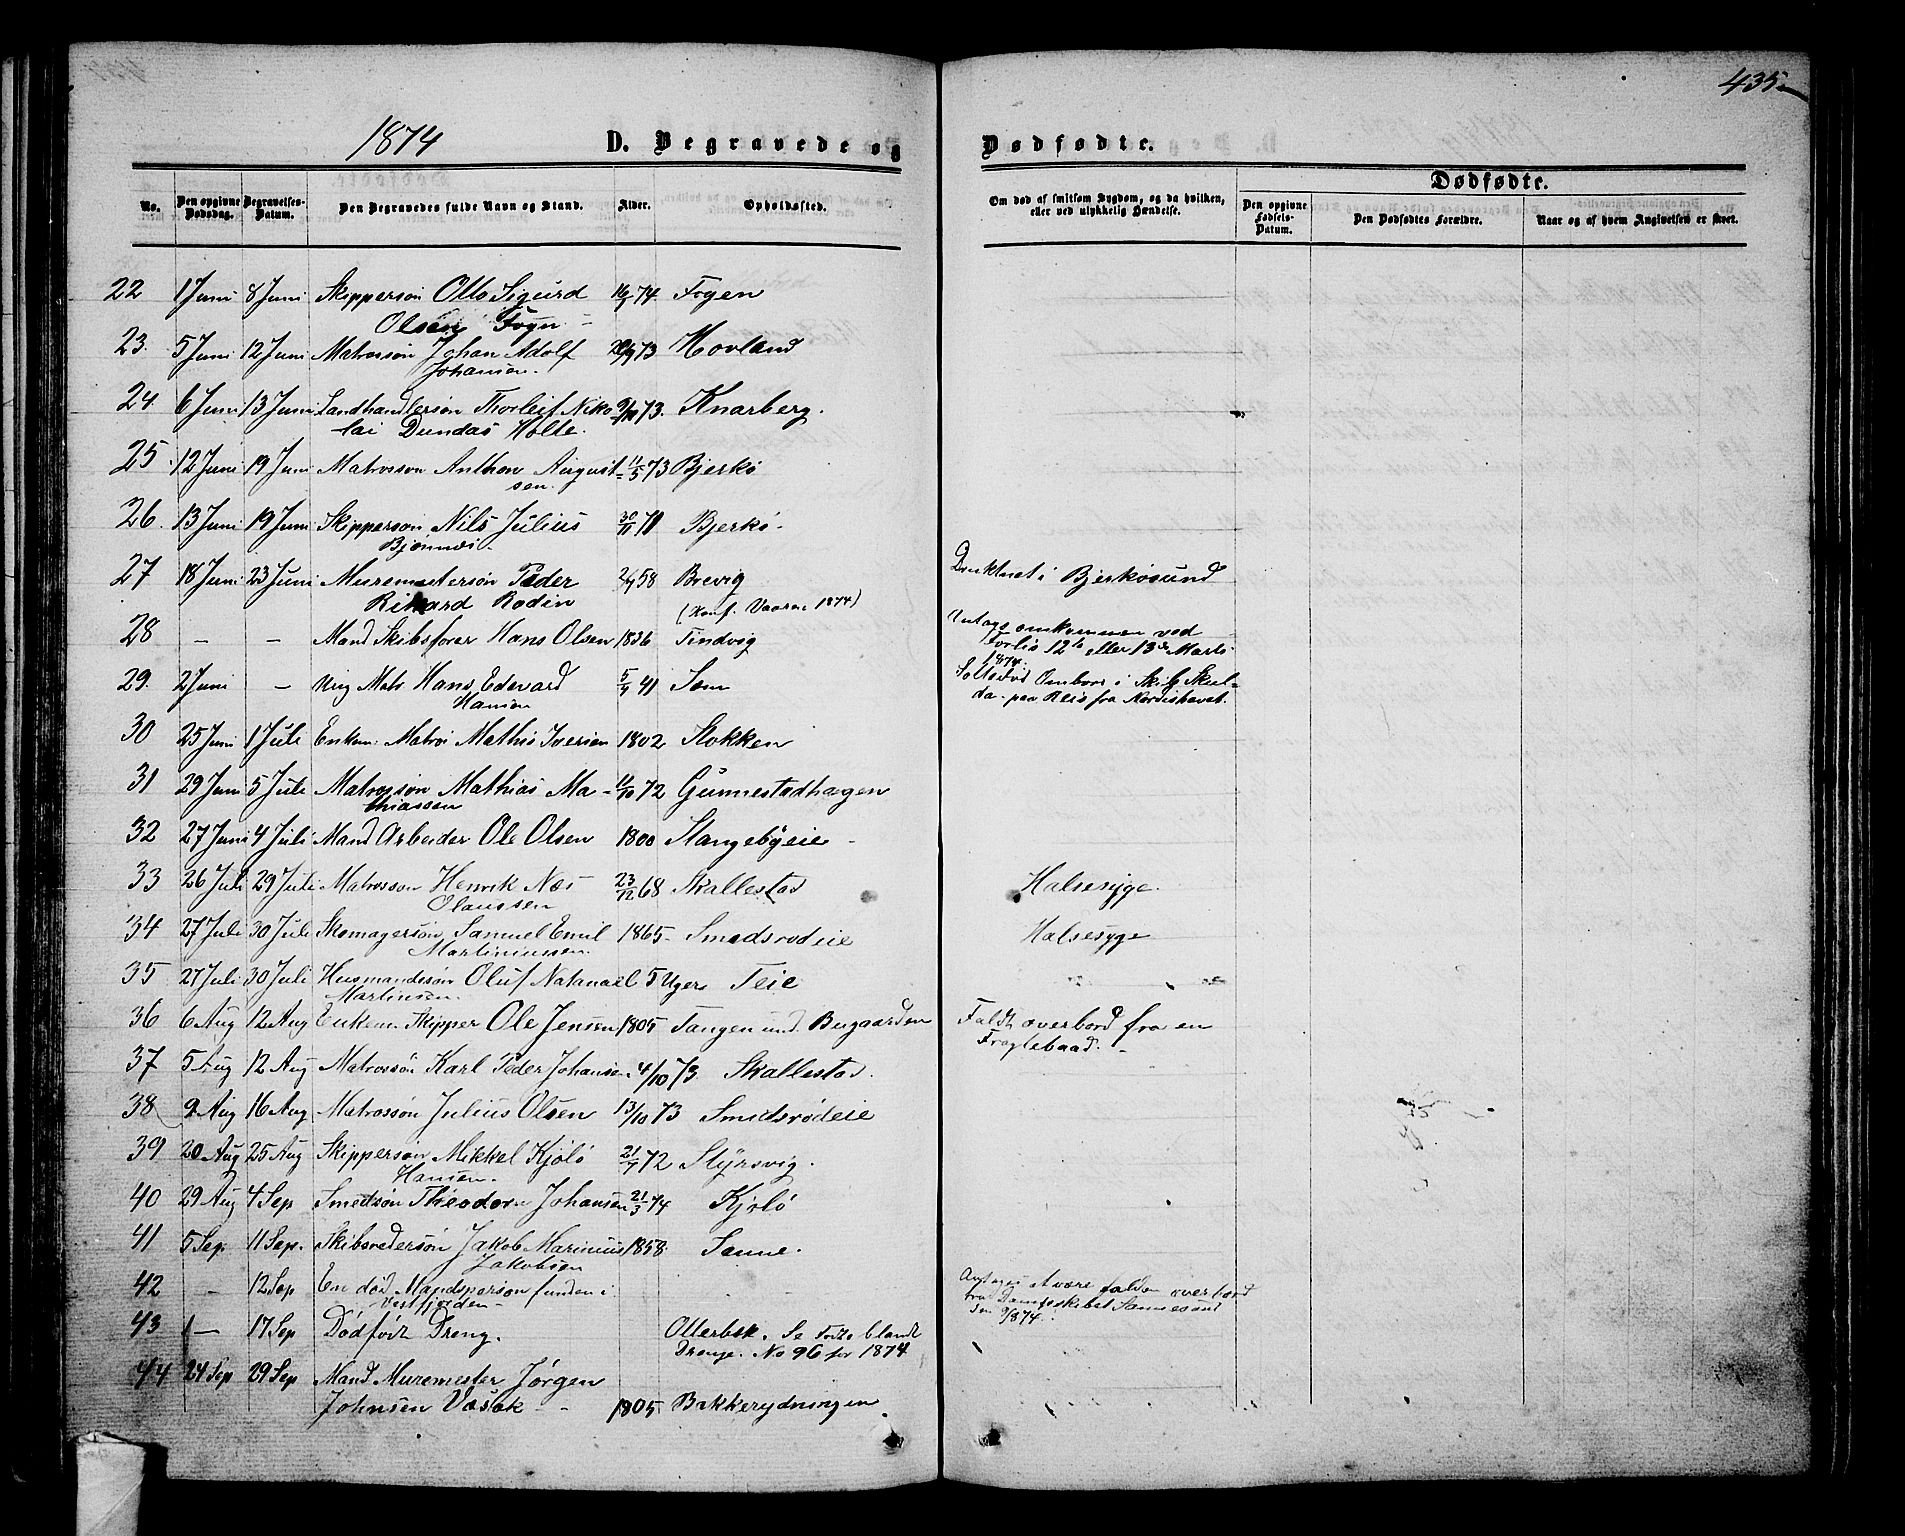 435
1874 D. Begravede og Dødfødte.
No. Den opgivne Dødsdag. Begravelses-Datum. Den Begravedes fulde Navn og Stand. Alder. Opholdssted. Om død af smitsom Sygdom, og da hvilken, eller ved ulykkelig Hændelse. Dødfødte. Den opgivne Fødsels-Datum. Den Dødfødtes Forældre. Naar og af hvem Angivelsen er skeet.
22 1 Juni 8 Juni Skippersøn Otto Sigurd 74 Fogen
Olsen Fogn
23. 5 Juni 12 Juni Matrossøn Johan Adolf 73 Hovland
Johansen.
24. 6 Juni 13 Juni Landhandlersøn Thorleif Niko 9/10 73. Knarberg.
lai Dundas Holte.
25. 12 Juni 19 Juni Matrosson Anthon August 11/5 73 Bjerkö
sen.
26. 13 Juni 19 Juni Skippersøn Nils Julius 30/11 71 Bjerkö.
Bjönnes.
27 18 Juni 23 Juni Muremestersön Peder 58 Brevig Druknet i Bjerkösund
Rikard Rodin (Konf. Vaaren 1874)
28 – – Mand Skibsforer Hans Olsen 1836 Tindvig Antages omkommen ved
Forlis 12te eller 13de Marts
1874.
29. 2 Juni – Ugift Matr Hans Edevard 5/9 41 Sem Ombord i Skib Skul-
Hansen da paa Reis fra Nordishavet.
30 25 Juni 1 Juli Enkem: Matros Mathis Iversen 1802 Stokken
31 29 Juni 5 Juli Matrossøn Mathias Ma- 11/10 72 Gunnestadhagen
thiassen
32 27 Juni 4 Juli Mand Arbeider Ole Olsen 1800 Stangebyeie
33 26 Juli 29 Juli Matrossøn Henrik Næs 23/12 68 Skallestad Halsesyge.
Olaussen
34 27 Juli 30 Juli Skomagersøn Samuel Emil 1865 Smedsrödeie Halsesyge
Martiniussen.
35 27 Juli 30 Juli Husmandssön Oluf Natanael 5 Uger Teie
Martinsen.
36 6 Aug 12 Aug Enkem. Skipper Ole Jensen 1805 Tangen und. Bugaarden Faldt overbord fra en
Fragtebaad.
37 5 Aug 12 Aug Matrossön Karl Peder Johansen 4/10 73 Skallestad.
38 9 Aug 16 Aug Matrossøn Julius Olsen 13/10 73 Smidsrødeie
39 20 Aug 25 Aug Skippersøn Mikkel Kjölö 21/7 72 Styrsvig.
Hansen.
40 29 Aug 4 Sep Smedsøn Theodor Johansen 21/3 74 Kjölö
41 5 Sep. 11 Sep. Skibsredersøn Jakob Marinius 1858 Sanne.
Jakobsen
42 – 12 Sep En død Mandsperson funden i Antages at være falden overbord
Vestfjorden fra Dampskibet Sannesund
den 9/8 74.
43 1 – 17 Sep Dödfödt Dreng. Otterbek. Se Fødte blandt
Drenge. No 96 for 1874
44 24 Sep 29 Sep Mand Muremester Jørgen
Johnsen Vasæk 1805 Bakkerydningen